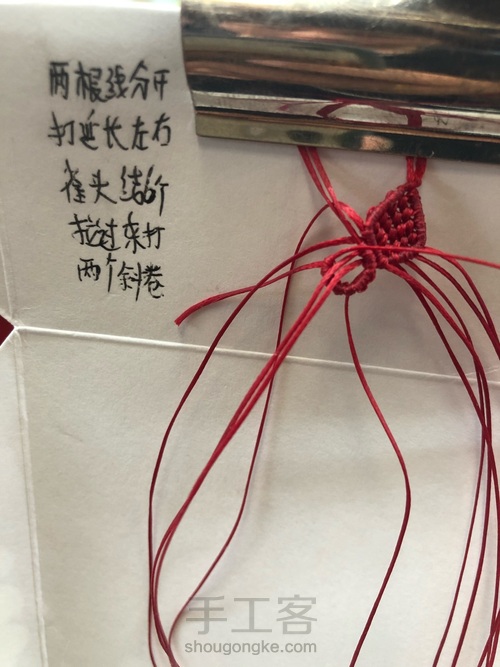 两根线分开
打延长左右
雀头结6个
拉过来打
两个斜卷
手工客
shougongke.com